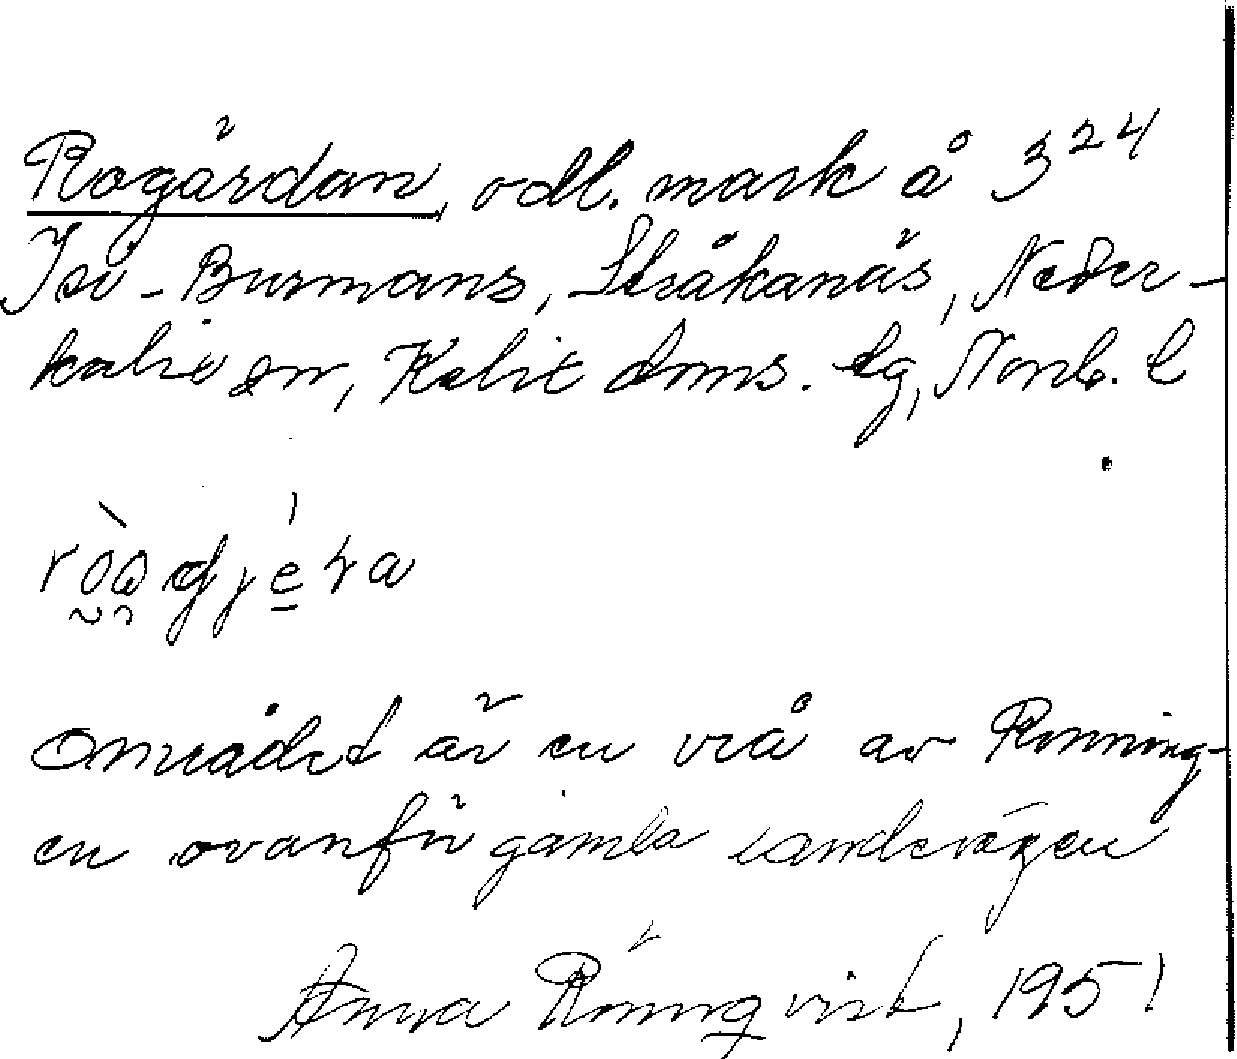 Rogärdan, odl. mark å 3²⁴
Isi-Burmans, Stråkanäs, Neder-
kalix sn, Kalix doms. tg, Norrb. l
Området är en vrå av Rönning-
en ovanför gamla landsvägen
Anna Rönnqvist, 1951